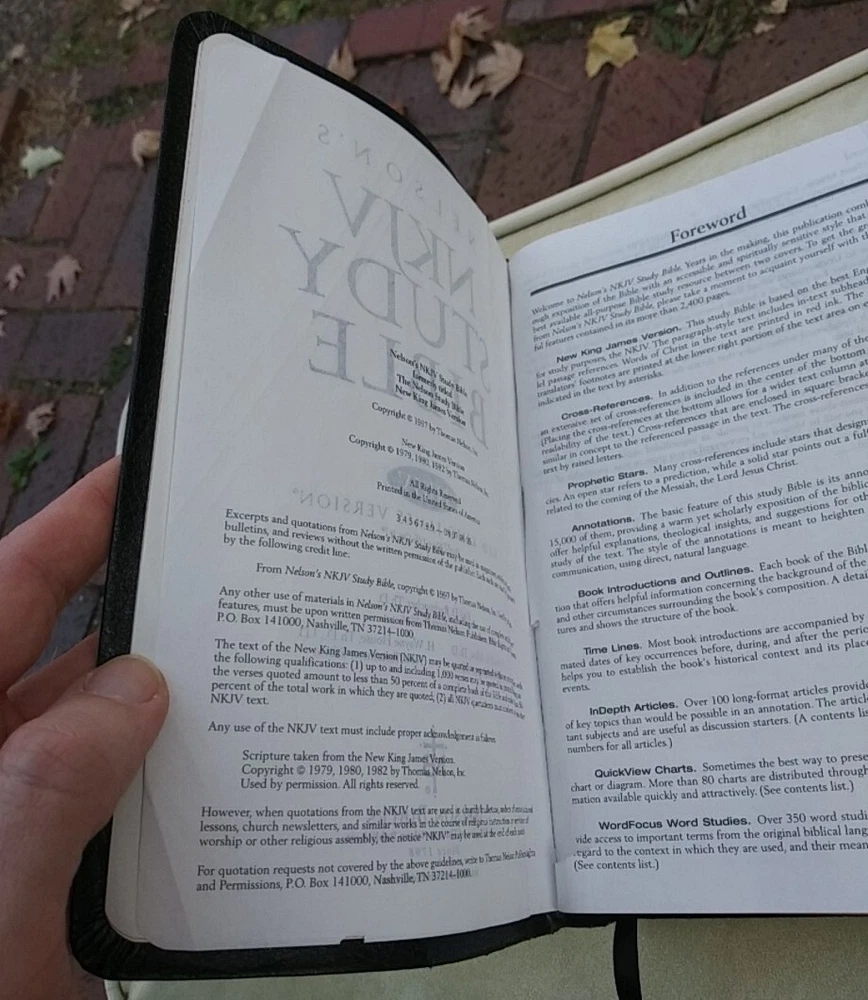 Nelson's NKJV Study Bible
formerly titled
The Nelson Study Bible
New King James Version
Copyright © 1997 by Thomas Nelson, Inc.
New King James Version
Copyright © 1979, 1980, 1982 by Thomas Nelson, Inc.
All Rights Reserved
Printed in the United States of America
Excerpts and quotations from Nelson's NKJV Study Bible may be used in
bulletins, and reviews without the written permission of the publisher.
by the following credit line:
From Nelson's NKJV Study Bible, copyright © 1997 by Thomas Nelson, Inc.
Any other use of materials in Nelson's NKJV Study Bible, including the use of
features, must be upon written permission from Thomas Nelson Publishers,
P.O. Box 141000, Nashville, TN 37214-1000.
The text of the New King James Version (NKJV) may be quoted or reprinted
the following qualifications: (1) up to and including 1,000 verses may be quoted
the verses quoted amount to less than 50 percent of a complete book of the
percent of the total work in which they are quoted; (2) all NKJV quotations must
NKJV text.
Any use of the NKJV text must include proper acknowledgment as follows:
Scripture taken from the New King James Version.
Copyright © 1979, 1980, 1982 by Thomas Nelson, Inc.
Used by permission. All rights reserved.
However, when quotations from the NKJV text are used in church bulletins, orders of
lessons, church newsletters, and similar works in the course of religious instruction or
worship or other religious assembly, the notice "NKJV" may be used at the end of each
For quotation requests not covered by the above guidelines, write to Thomas Nelson
and Permissions, P.O. Box 141000, Nashville, TN 37214-1000.
Foreword
Welcome to Nelson's NKJV Study Bible. Years in the making, this publication
ough exposition of the Bible with an accessible and spiritually sensitive style that
best available all-purpose Bible study resource between two covers. To get the
from Nelson's NKJV Study Bible, please take a moment to acquaint yourself with
ful features contained in its more than 2,400 pages.
New King James Version. This study Bible is based on the best
for study purposes, the NKJV. The paragraph-style text includes in-text
lel passage references. Words of Christ in the text are printed in red ink. The
translators' footnotes are printed at the lower right portion of the text area on
indicated in the text by asterisks.
Cross-References. In addition to the references under many of the
an extensive set of cross-references is included in the center of the bottom
(Placing the cross-references at the bottom allows for a wider text column
readability of the text.) Cross-references that are enclosed in square
similar in concept to the referenced passage in the text. The cross-references
text by raised letters.
Prophetic Stars. Many cross-references include stars that
cies. An open star refers to a prediction, while a solid star points out a
related to the coming of the Messiah, the Lord Jesus Christ.
Annotations. The basic feature of this study Bible is its
15,000 of them, providing a warm yet scholarly exposition of the
offer helpful explanations, theological insights, and suggestions for
study of the text. The style of the annotations is meant to heighten
communication, using direct, natural language.
Book Introductions and Outlines. Each book of the
tion that offers helpful information concerning the background of the
and other circumstances surrounding the book's composition. A
tures and shows the structure of the book.
Time Lines. Most book introductions are accompanied by
mated dates of key occurrences before, during, and after the
helps you to establish the book's historical context and its
events.
InDepth Articles. Over 100 long-format articles
of key topics than would be possible in an annotation. The
tant subjects and are useful as discussion starters. (A contents
numbers for all articles.)
QuickView Charts. Sometimes the best way to
chart or diagram. More than 80 charts are distributed
mation available quickly and attractively. (See contents list.)
WordFocus Word Studies. Over 350 word
vide access to important terms from the original biblical
regard to the context in which they are used, and their
(See contents list.)